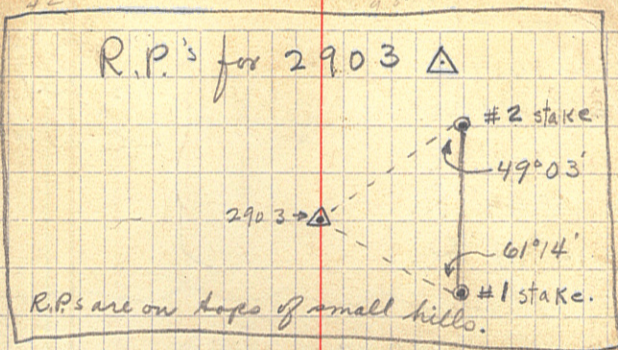 R.P.'s for 2903 △
#2 stake.
49°03'
2903→
61°14'
#1 stake.
R.P.s are on tops of small hills.